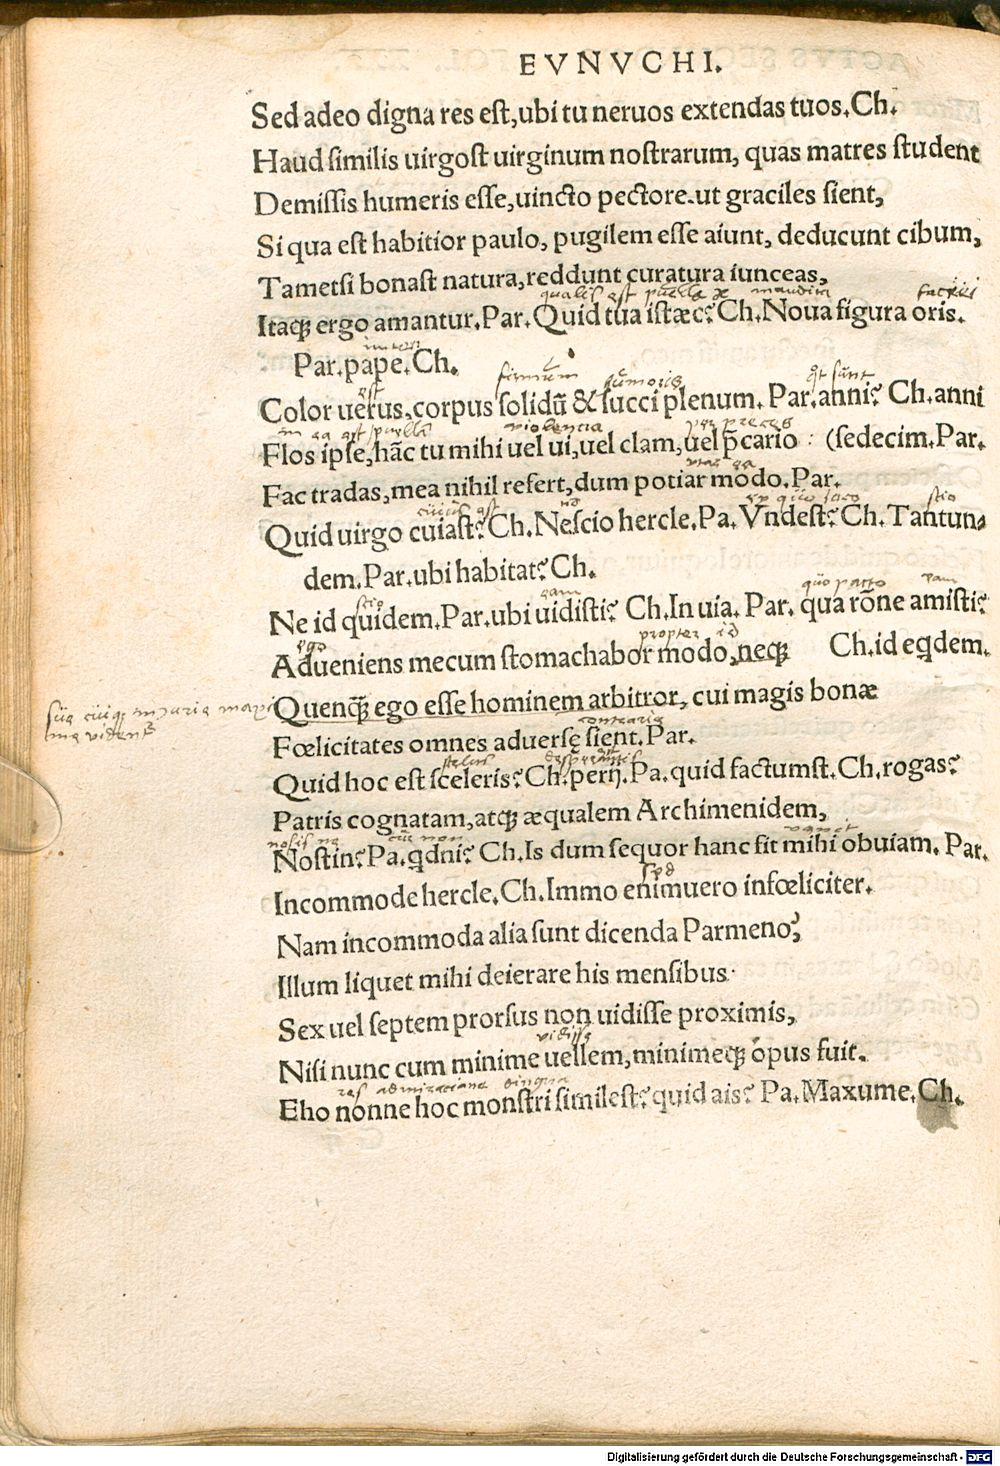 EVNVCHI.
Sed adeo digna res est, ubi tu neruos extendas tuos. Ch.
Haud similis uirgost uirginum nostrarum, quas matres student
Demissis humeris esse, uincto pectore. ut graciles sient,
Si qua est habitior paulo, pugilem esse aiunt, deducunt cibum,
Tametsi bonast natura, reddunt curatura iunceas,
qualis est puella
Itaqꝫ ergo amantur. Par. Quid tua istæc? Ch. Noua figura oris.
Par. pape. Ch.
firmum humoris qt sunt
Color uerus, corpus solidū & succi plenum. Par. anni? Ch. anni
in ea est puella violencia per preces
Flos ipse, hāc tu mihi uel ui, uel clam, uel p̄cario : (sedecim. Par.
Fac tradas, mea nihil refert, dum potiar modo. Par.
cuius est ex quo loco scio
Quid uirgo cuiast? Ch. Nescio hercle. Pa. Vndest? Ch. Tantun-
dem. Par. ubi habitat? Ch.
scio eam quo pacto eam
Ne id quidem. Par. ubi uidisti? Ch. In uia. Par. qua rōne amisti?
ego propter id
Adueniens mecum stomachabor modo, neqꝫ Ch. id eqdem.
Quenq̄ꝫ ego esse hominem arbitror, cui magis bonæ
suæ cuiqꝫ iniuria maxi
me videnť
contraria
Fœlicitates omnes aduersę sient. Par.
scelus
Quid hoc est sceleris? Ch. perij. Pa. quid factumst. Ch. rogas?
Patris cognatam, atqꝫ æqualem Archimenidem,
cur non
Nostin? Pa. qdni? Ch. Is dum sequor hanc fit mihi obuiam. Par.
sed
Incommode hercle. Ch. Immo enimuero infœliciter.
Nam incommoda alia sunt dicenda Parmeno?
Illum liquet mihi deierare his mensibus·
Sex uel septem prorsus non uidisse proximis,
vidisse
Nisi nunc cum minime uellem, minimeqꝫ opus fuit.
res admiracione
Eho nonne hoc monstri similest? quid ais? Pa. Maxume. Ch.
Digitalisierung gefördert durch die Deutsche Forschungsgemeinschaft - DFG